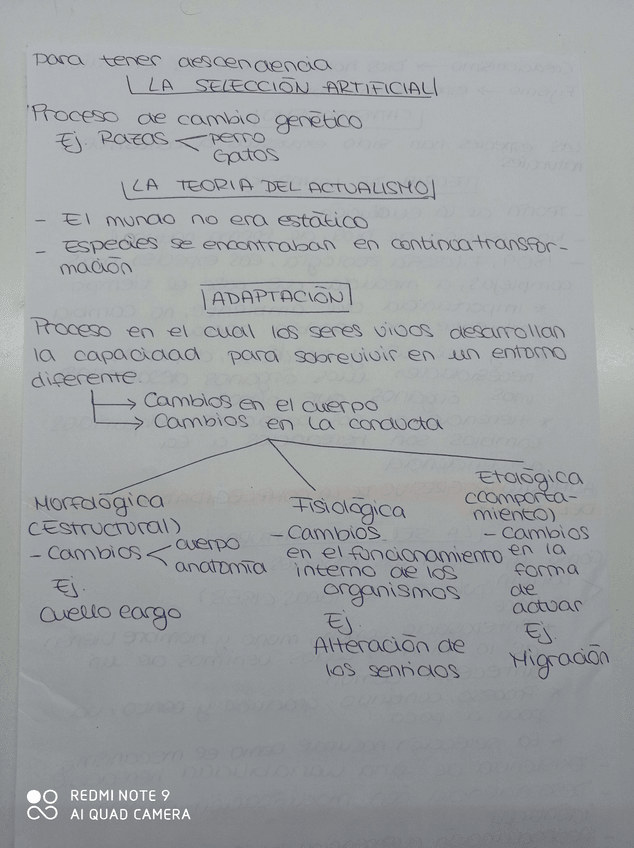 para tener descendencia
LA SELECCIÓN ARTIFICIAL
Proceso de cambio genético
Ej. Razas perro
Gatos
LA TEORIA DEL ACTUALISMO
- El mundo no era estático
- Especies se encontraban en continca transfor-
mación
ADAPTACIÓN
Proceso en el cual los seres vivos desarrollan
la capacidad para sobrevivir en un entorno
diferente.
Cambios en el cuerpo
Cambios en la conducta
Morfológica
(Estructural)
- Cambios cuerpo
anatomía
Ej.
Cuello largo
Fisiológica
- Cambios
en el funcionamiento
interno de los
organismos
Ej.
Alteración de
los sentidos
Etológica
(comporta-
miento)
- Cambios
en la
forma
de
actuar
Ej.
Migración
REDMI NOTE 9
AI QUAD CAMERA